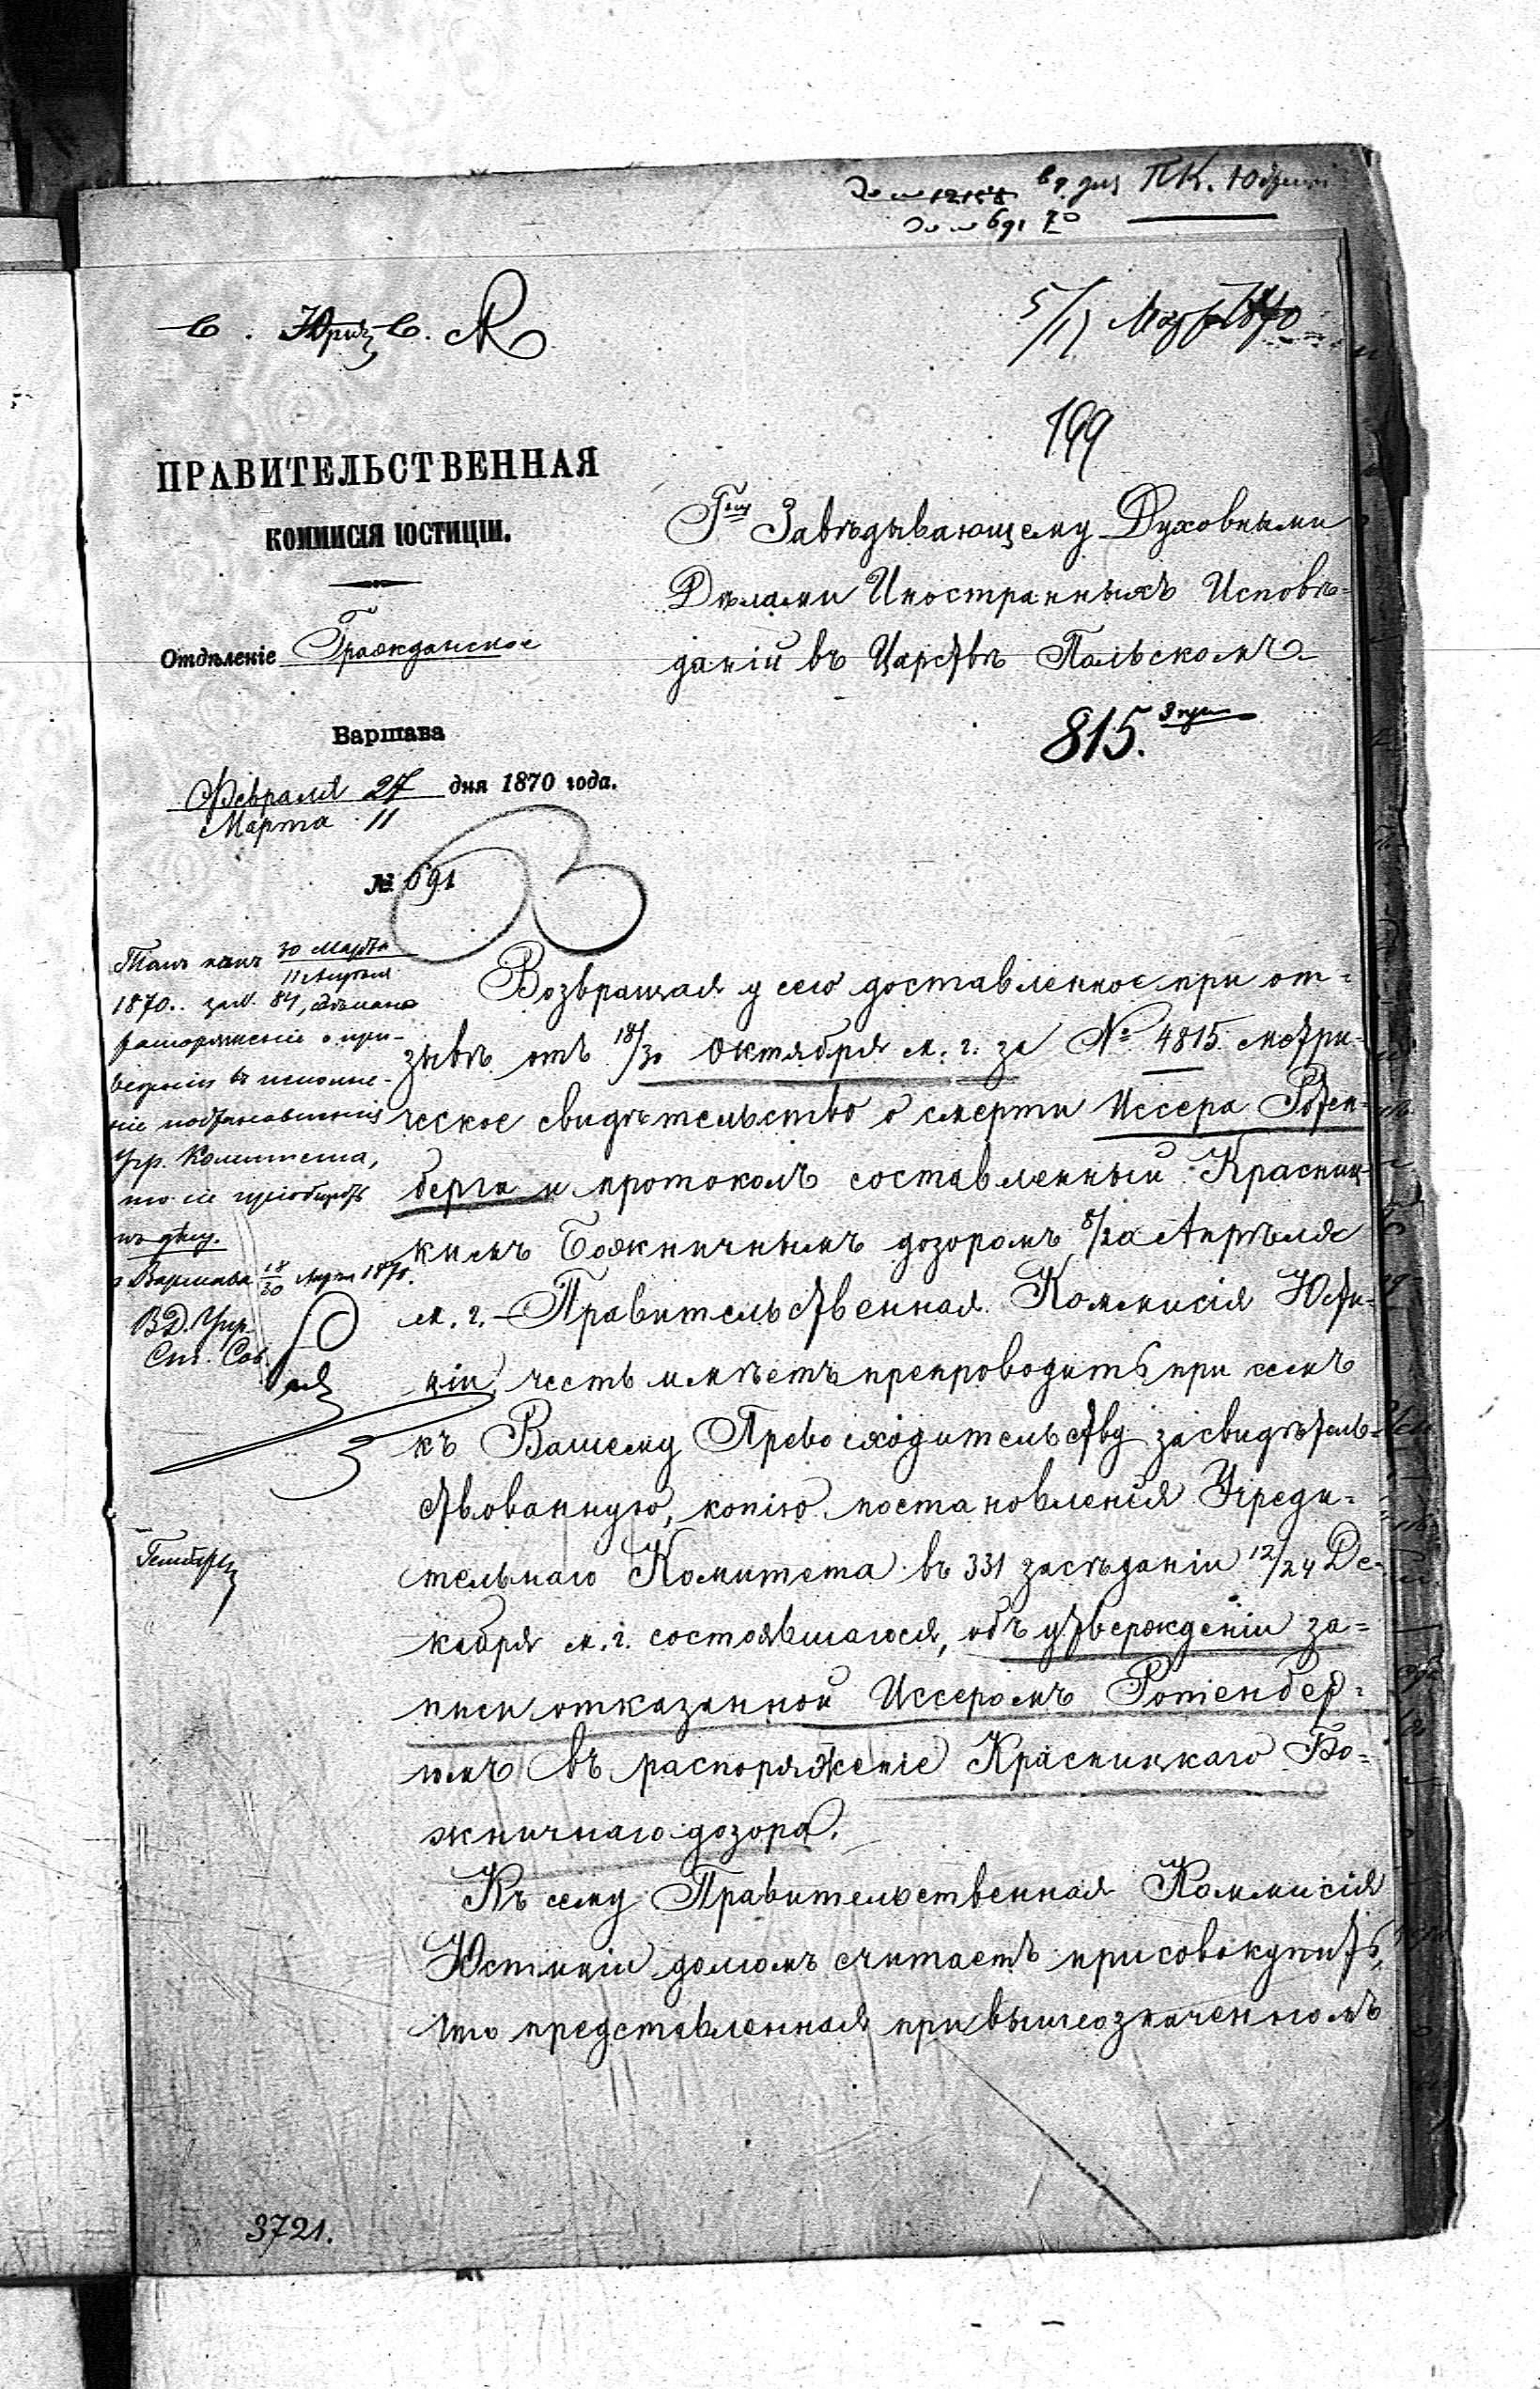 199
ПРАВИТЕЛЬСТВЕННАЯ
КОММИСІЯ ЮСТИЦІИ.
Отдѣленіе Гражданское
Варшава
Февраля 27 дня 1870 года.
Марта 11
№ 691
Гну Завѣдывающему Духовными
Дѣлами Иностранныхъ Исповѣ=
даній въ Царствѣ Польскомъ
815.
Такъ какъ 30 Марта
11 Апрѣля
1870. за № 84, сдѣлано
распоряженіе о при-
веденіи въ исполне-
ніе постановленія
Учр. Комитета,
то сіе пріобщить
къ дѣлу.
Варшава 18/30 1870.
Возвращая у сего доставленное при от=
зывѣ отъ 18/30 Октября м. г. за № 4815 метри-
ческое свидѣтельство о смерти Иссера Ротен-
берга и протоколъ составленный Красниц-
кимъ Божничнымъ дозоромъ 8/20 Апрѣля
м. г. – Правительственная Коммисія Юсти-
ціи честь имѣетъ препроводить при семъ
къ Вашему Превосходительству засвидѣтель-
ствованную копію постановленія Учреди=
тельнаго Комитета въ 331 засѣданіи 12/24 Де-
кабря м. г. состоявшагося, объ утвержденіи за=
писи отказанной Иссеромъ Ротенбер=
гомъ въ распоряженіе Красницкаго Бо=
жничнаго дозора.
Къ сему Правительственная Коммисія
Юстиціи долгомъ считаетъ присовокупить,
что представленная при вышеозначенномъ
3721.